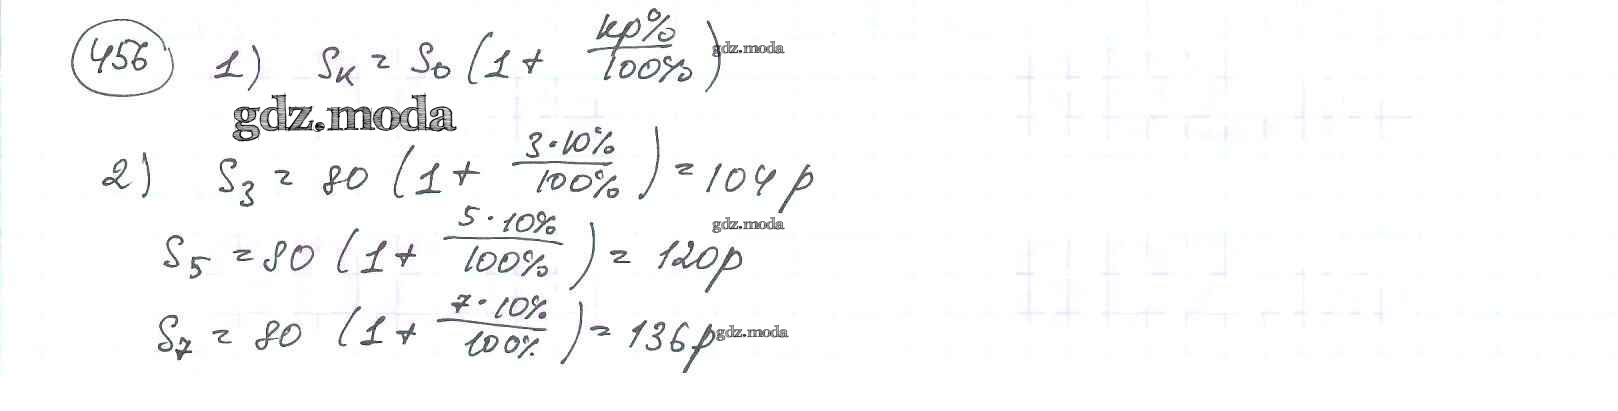 456 1) Sк = S0 (1 + кр%/100%) gdz.moda
gdz.moda
2) S3 = 80 (1 + 3·10%/100%) = 104 р
gdz.moda
S5 = 80 (1 + 5·10%/100%) = 120р
S7 = 80 (1 + 7·10%/100%) = 136р gdz.moda